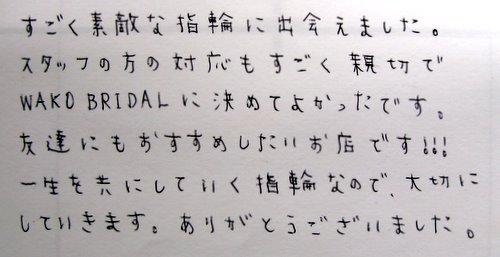 すごく素敵な指輪に出会えました。
スタッフの方の対応もすごく親切で
WAKO BRIDALに決めてよかったです。
友達にもおすすめしたいお店です!!!
一生を共にしていく指輪なので、大切に
していきます。ありがとうございました。